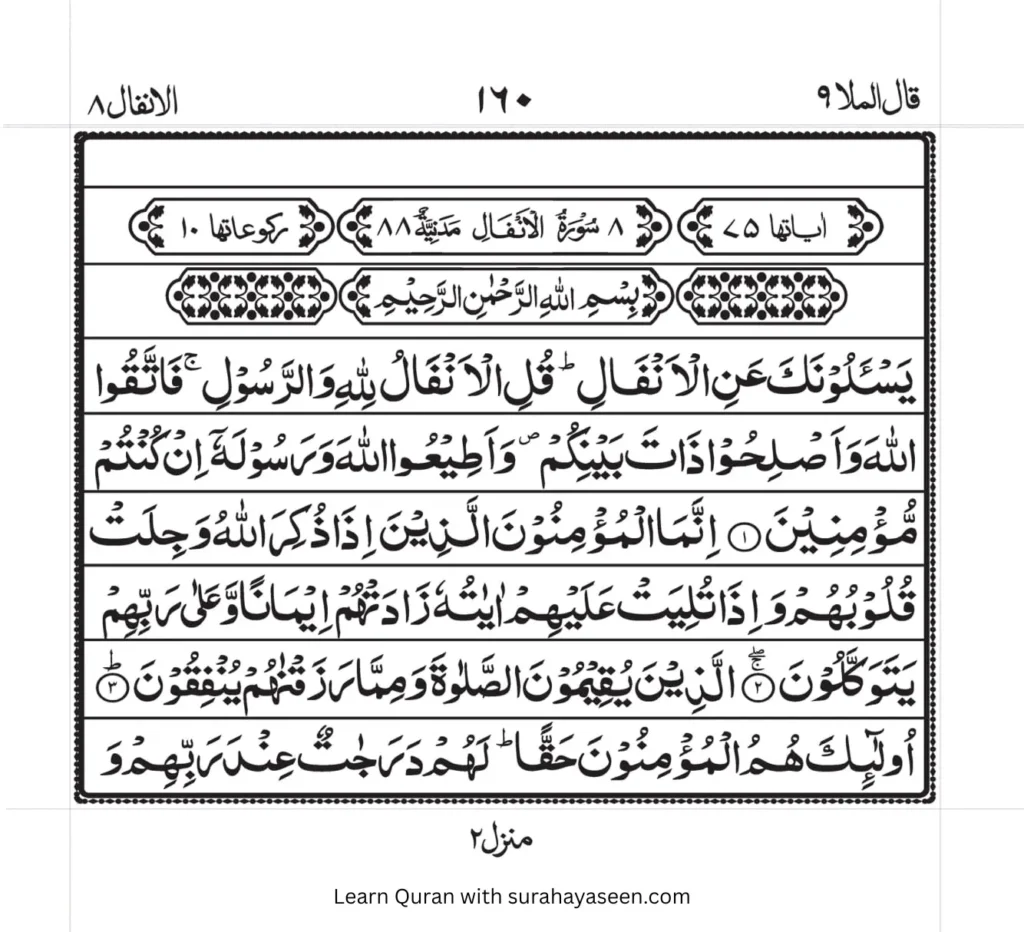 قال الملا ٩ ١٦٠ الانفال ٨
اٰیاتها ٧٥ ٨ سُوْرَةُ الْاَنْفَالِ مَدَنِیَّةٌ ٨٨ رکوعاتها ١٠
بِسْمِ اللّٰهِ الرَّحْمٰنِ الرَّحِیْمِ
یَسْـَٔلُوْنَكَ عَنِ الْاَنْفَالِ ؕ قُلِ الْاَنْفَالُ لِلّٰهِ وَ الرَّسُوْلِ ۚ فَاتَّقُوا
اللّٰهَ وَ اَصْلِحُوْا ذَاتَ بَیْنِكُمْ ۪ وَ اَطِیْعُوا اللّٰهَ وَ رَسُوْلَهٗۤ اِنْ كُنْتُمْ
مُّؤْمِنِیْنَ ﴿١﴾ اِنَّمَا الْمُؤْمِنُوْنَ الَّذِیْنَ اِذَا ذُكِرَ اللّٰهُ وَجِلَتْ
قُلُوْبُهُمْ وَ اِذَا تُلِیَتْ عَلَیْهِمْ اٰیٰتُهٗ زَادَتْهُمْ اِیْمَانًا وَّ عَلٰی رَبِّهِمْ
یَتَوَكَّلُوْنَ ﴿٢﴾ۚۖ الَّذِیْنَ یُقِیْمُوْنَ الصَّلٰوةَ وَ مِمَّا رَزَقْنٰهُمْ یُنْفِقُوْنَ ﴿٣﴾ؕ
اُولٰٓىِٕكَ هُمُ الْمُؤْمِنُوْنَ حَقًّا ؕ لَهُمْ دَرَجٰتٌ عِنْدَ رَبِّهِمْ وَ
منزل ٢
Learn Quran with surahayaseen.com